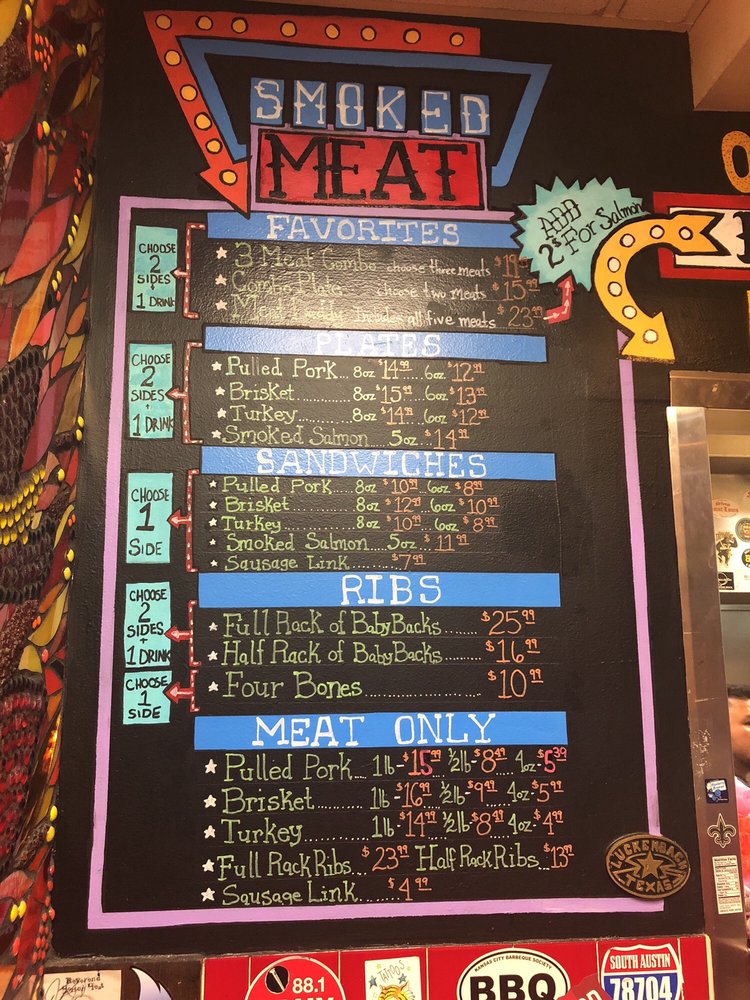 SMOKED
MEAT
ADD
2$ For Salmon
FAVORITES
CHOOSE
2
SIDES
+
1 DRINK
3 Meat Combo choose three meats $19
Combo Plate choose two meats $15.99
Meat includes all five meats $23.99
PLATES
CHOOSE
2
SIDES
+
1 DRINK
Pulled Pork 8oz $14.99 .... 6oz $12.99
Brisket ........ 8oz $15.99 6oz $13.99
Turkey ........ 8oz $14.99 6oz $12.99
Smoked Salmon .... 5oz $14.99
SANDWICHES
CHOOSE
1
SIDE
Pulled Pork .... 8oz $10.99 6oz $8.99
Brisket ............ 8oz $12.99 6oz $10.99
Turkey ............ 8oz $10.99 6oz $8.99
Smoked Salmon .... 5oz $11.99
Sausage Link .... $7.99
RIBS
CHOOSE
2
SIDES
+
1 DRINK
Full Rack of BabyBacks ........ $25.99
Half Rack of BabyBacks ........ $16.99
CHOOSE
1
SIDE
Four Bones ........ $10.99
MEAT ONLY
Pulled Pork .... 1lb-$15.99 ½lb-$8.49 4oz-$5.39
Brisket ........ 1lb-$16.99 ½lb-$9.49 4oz-$5.99
Turkey ........ 1lb-$14.99 ½lb-$8.49 4oz-$4.99
Full Rack Ribs .. $23.99 Half Rack Ribs .. $13.99
Sausage Link ........ $4.99
LUCKENBACH
TEXAS
Nutrition Facts
Reverend
88.1
TATTOOS
KANSAS CITY BARBEQUE SOCIETY
BBQ
SOUTH AUSTIN
78704